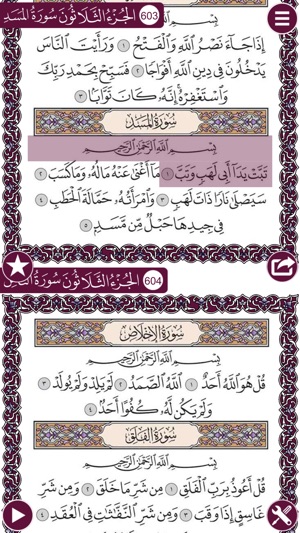 603 الجُزْءُ الثَّلَاثُونَ سُورَةُ المَسَدِ
بِسْمِ اللَّهِ الرَّحْمَٰنِ الرَّحِيمِ
إِذَا جَاءَ نَصْرُ اللَّهِ وَالْفَتْحُ ١ وَرَأَيْتَ النَّاسَ
يَدْخُلُونَ فِي دِينِ اللَّهِ أَفْوَاجًا ٢ فَسَبِّحْ بِحَمْدِ رَبِّكَ
وَاسْتَغْفِرْهُ إِنَّهُ كَانَ تَوَّابًا ٣
سُورَةُ المَسَدِ
بِسْمِ اللَّهِ الرَّحْمَٰنِ الرَّحِيمِ
تَبَّتْ يَدَا أَبِي لَهَبٍ وَتَبَّ ١ مَا أَغْنَىٰ عَنْهُ مَالُهُ وَمَا كَسَبَ ٢
سَيَصْلَىٰ نَارًا ذَاتَ لَهَبٍ ٣ وَامْرَأَتُهُ حَمَّالَةَ الْحَطَبِ ٤
فِي جِيدِهَا حَبْلٌ مِّن مَّسَدٍ ٥
604 الجُزْءُ الثَّلَاثُونَ سُورَةُ
سُورَةُ الإِخْلَاصِ
بِسْمِ اللَّهِ الرَّحْمَٰنِ الرَّحِيمِ
قُلْ هُوَ اللَّهُ أَحَدٌ ١ اللَّهُ الصَّمَدُ ٢ لَمْ يَلِدْ وَلَمْ يُولَدْ ٣
وَلَمْ يَكُن لَّهُ كُفُوًا أَحَدٌ ٤
سُورَةُ الفَلَقِ
بِسْمِ اللَّهِ الرَّحْمَٰنِ الرَّحِيمِ
قُلْ أَعُوذُ بِرَبِّ الْفَلَقِ ١ مِن شَرِّ مَا خَلَقَ ٢ وَمِن شَرِّ
غَاسِقٍ إِذَا وَقَبَ ٣ وَمِن شَرِّ النَّفَّاثَاتِ فِي الْعُقَدِ ٤